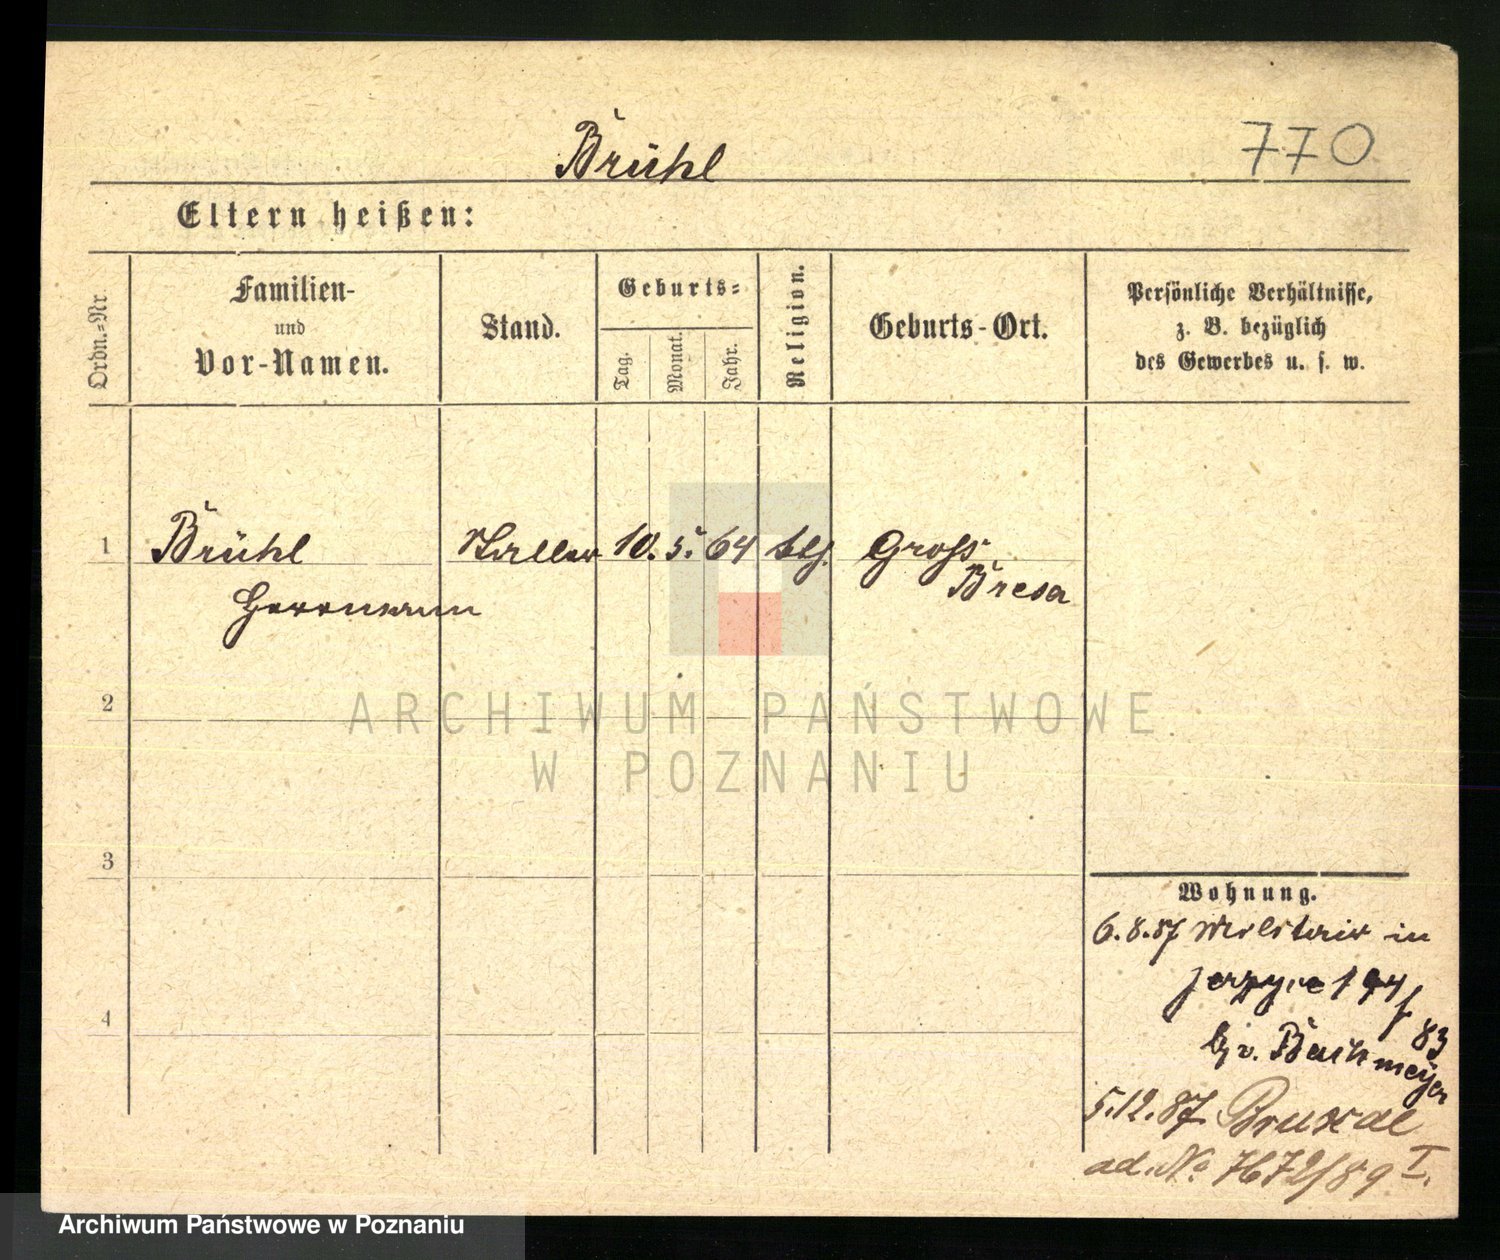 Brühl
770
Eltern heißen:
Ordn.-Nr
Familien-
und
Vor-Namen.
Stand.
Geburts-
Tag.
Monat.
Jahr.
Religion.
Geburts-Ort.
Persönliche Verhältnisse,
z. B. bezüglich
des Gewerbes u. s. w.
1
Brühl
Herrmann
10. 5. 64
Gross
Bresa
2
ARCHIWUM PAŃSTWOWE
W POZNANIU
3
Wohnung.
6.8.87 Militair in
83
v. Bachmeyer
4
5.12.87
ad. No 7672/89 I.
Archiwum Państwowe w Poznaniu